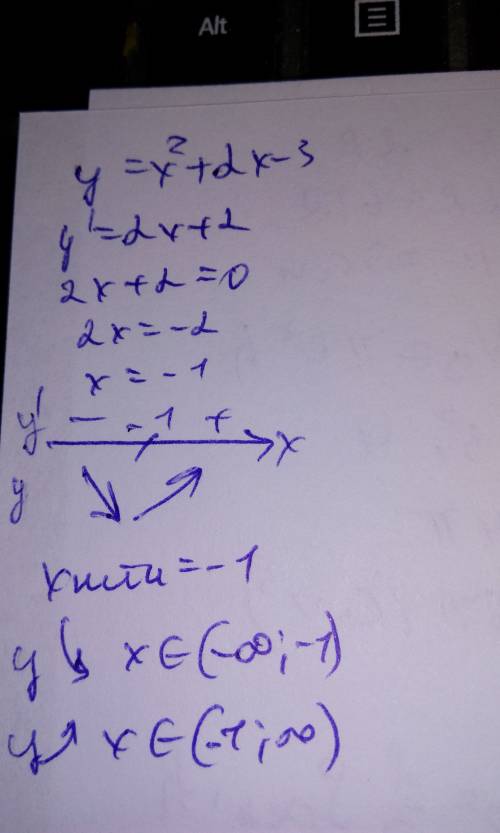 Alt
y = x² + 2x - 3
y' = 2x + 2
2x + 2 = 0
2x = -2
x = -1
y' - -1 + x
y ↘ ↗
x min = -1
y ↘ x ∈ (-∞; -1)
y ↗ x ∈ (-1; ∞)